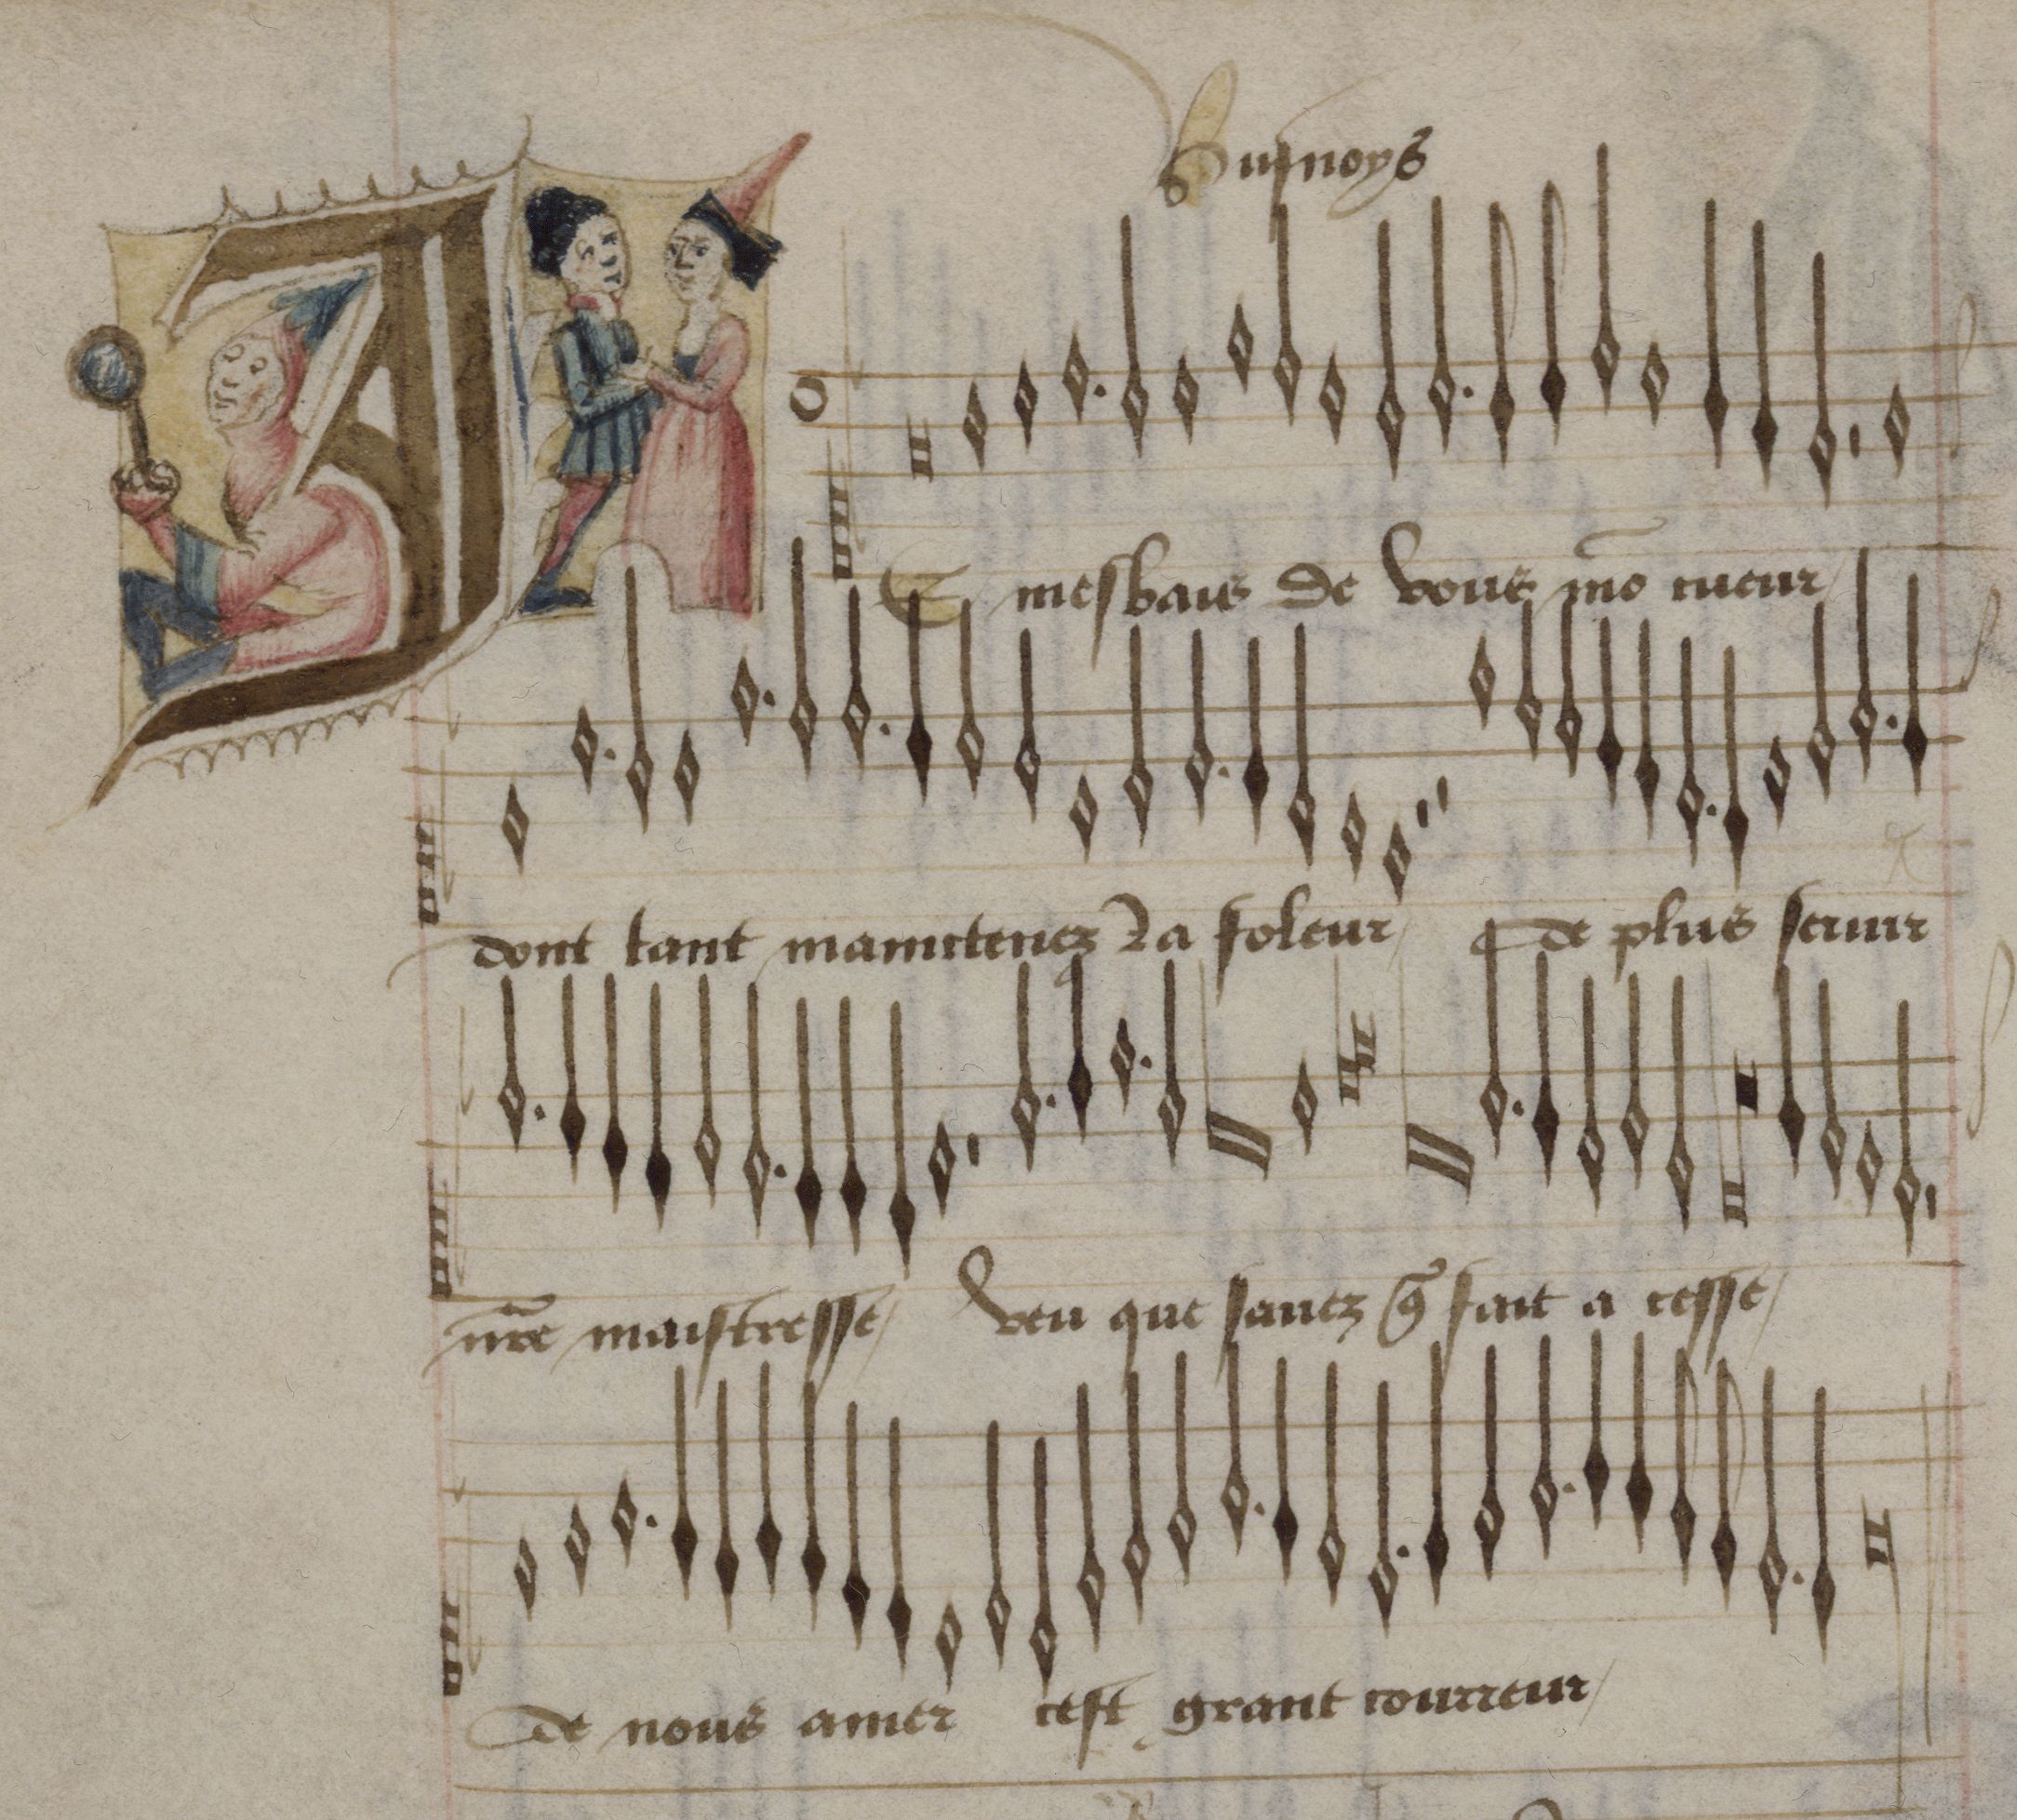 Busnoys
Je mesbais de vous mõ cueur
dont tant maintenez la foleur / de plus seruir
nr̃e maistresse / veu que sauez q̃ fait a cesse /
de nous amer cest grant courreur /